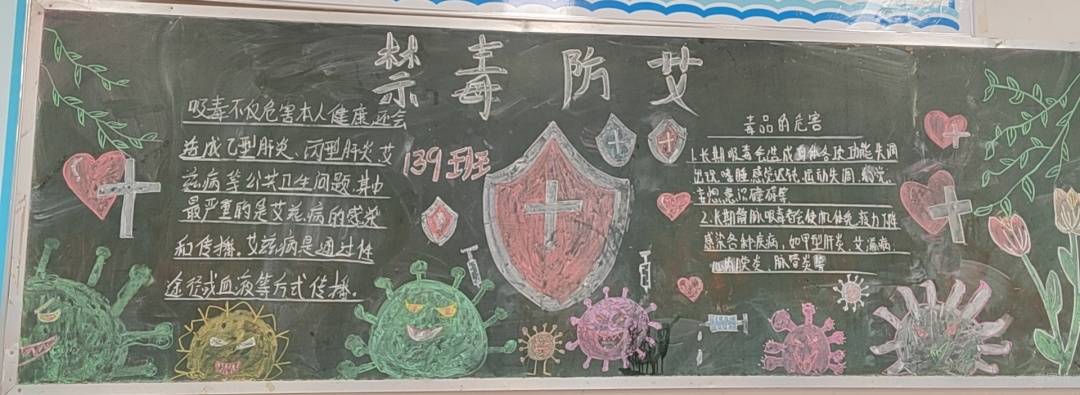 禁毒防艾
吸毒不仅危害本人健康,还会
造成乙型肝炎、丙型肝炎、艾
滋病等公共卫生问题,其中
最严重的是艾滋病的感染
和传播。艾滋病是通过性
途径或血液等方式传播。
139班
毒品的危害
1.长期吸毒会造成身体各项功能失调
出现嗜睡感觉迟钝、运动失调、幻觉、
妄想、意识障碍等
2.长期静脉吸毒会使机体免疫力下降
感染各种疾病,如甲型肝炎、艾滋病、
炎、脉管炎等